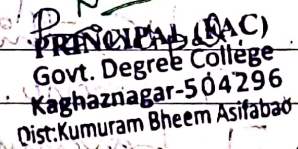 PRINCIPAL (FAC)
Govt. Degree College
Kaghaznagar-504296
Dist:Kumuram Bheem Asifabad